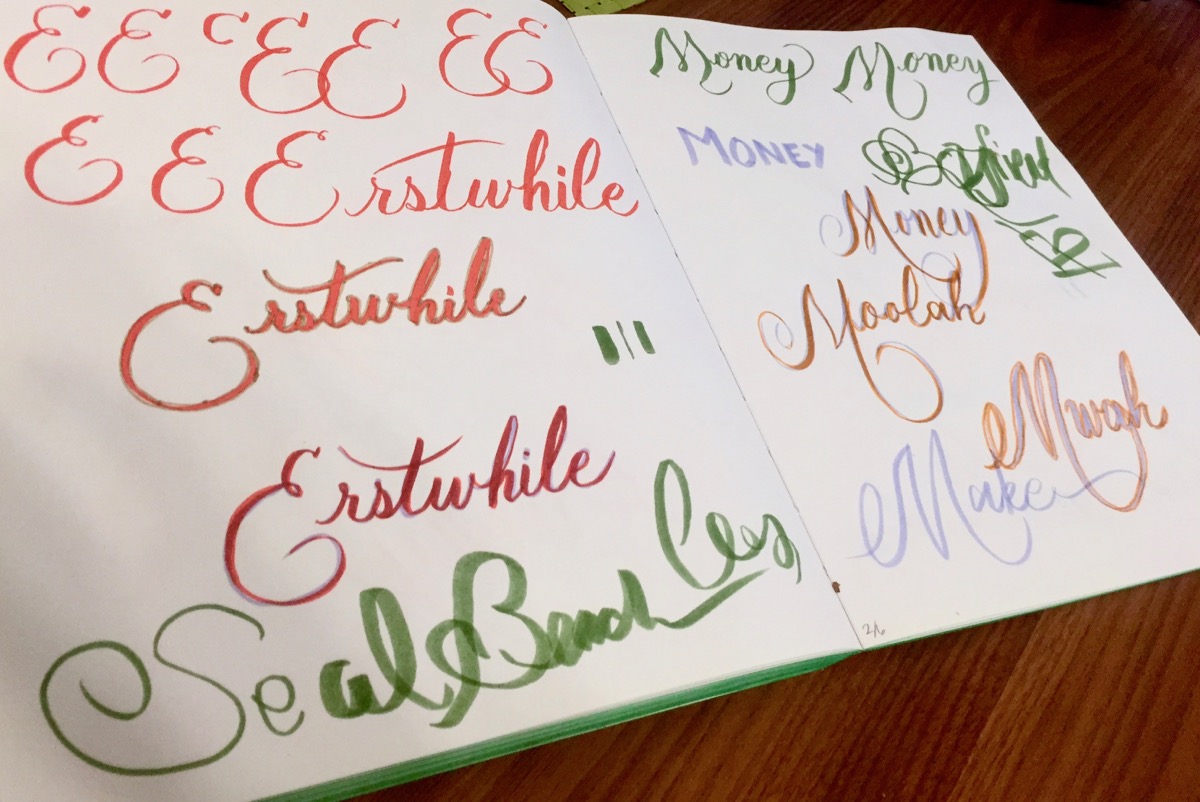 E E C E E E E
E E E Erstwhile
Erstwhile
Erstwhile
Seal Beach Less
Money Money
MONEY
Money
Moolah
Mwah
Make
26